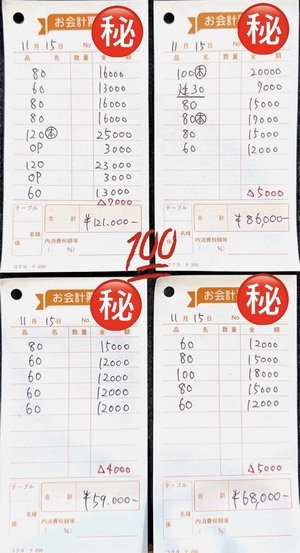 お会計票
㊙
11月15日 No.
品 名 数量 金 額
80 16000
60 13000
80 16000
80 16000
120㊍ 25000
OP 3000
120 23000
OP 3000
60 13000
△7000
テーブル 合 計 ¥121,000-
名様 内消費税額等
係 ( %)
コクヨ テ-250
お会計票
㊙
11月15日 No.
品 名 数量 金 額
100㊍ 20000
延30 9000
80 15000
80㊍ 17000
80 15000
60 12000
△5000
テーブル 合 計 ¥86,000-
名様 内消費税額等
係 ( %)
コクヨ テ-250
100
お会計票
㊙
11月15日 No.
品 名 数量 金 額
80 15000
60 12000
60 12000
60 12000
60 12000
△4000
テーブル 合 計 ¥59,000-
名様 内消費税額等
係 ( %)
コクヨ テ-250
お会計票
㊙
11月15日 No.
品 名 数量 金 額
60 12000
80 15000
100 18000
80 15000
60 12000
△5000
テーブル 合 計 ¥68,000-
名様 内消費税額等
係 ( %)
コクヨ テ-250